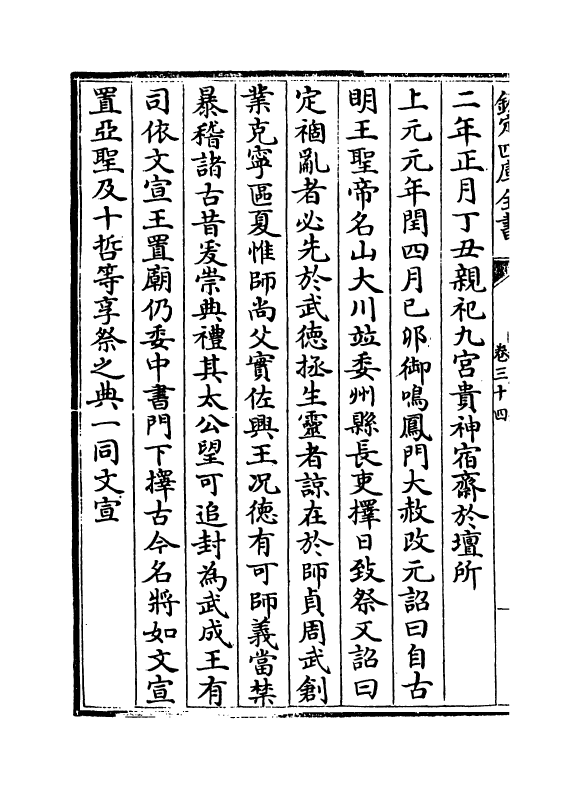 欽定四庫全書
卷三十四
二年正月丁丑親祀九宮貴神宿齋於壇所
上元元年閏四月已夘御鳴鳳門大赦改元詔曰自古
明王聖帝名山大川竝委州縣長吏擇日致祭又詔曰
定禍亂者必先於武徳拯生靈者諒在於師貞周武創
業克寧區夏惟師尚父實佐興王况徳有可師義當禁
暴稽諸古昔爰崇典禮其太公望可追封為武成王有
司依文宣王置廟仍委中書門下擇古今名將如文宣
置亞聖及十哲等享祭之典一同文宣